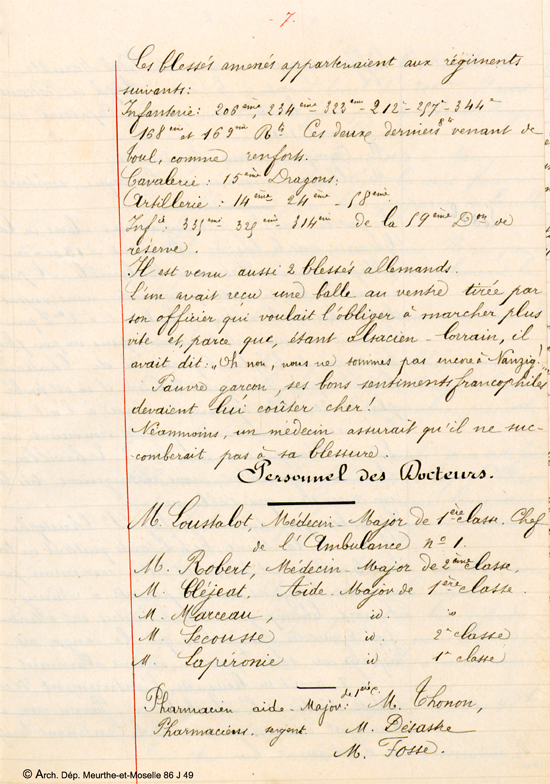 - 7.
Les blessés amenés appartenaient aux régiments
suivants:
Infanterie: 206ème, 234ème - 323ème - 212e - 257e - 344e
168ème et 169ème Rts Ces deux derniers venant de
Toul, comme renforts.
Cavalerie: 15ème Dragons;
Artillerie: 14ème 24ème - 58ème
Infie: 335ème 325ème 314ème de la 59ème Don de
réserve.
Il est venu aussi 2 blessés allemands.
L'un avait reçu une balle au ventre tirée par
son officier qui voulait l'obliger à marcher plus
vite et, parce que, étant alsacien-lorrain, il
avait dit: „Oh non, nous ne sommes pas encore à Nanzig!
Pauvre garçon, ses bons sentiments francophiles
devaient lui coûter cher!
Néanmoins, un médecin assurait qu'il ne suc-
comberait pas à sa blessure.
Personnel des Docteurs.
M. Loustalot, Médecin-Major de 1ère classe. Chef
de l'Ambulance no 1.
M. Robert, Médecin-Major de 2ème classe,
M. Cléjeat, Aide-Major de 1ère classe.
M. Marceau, id. id
M. Lecousse id. 2e classe
M. Lapéronie id 1e classe
Pharmacien aide-Major de 1ère c.: M. Thonon,
Pharmaciens sergent M. Désastre
M. Fosse.
© Arch. Dép. Meurthe-et-Moselle 86 J 49